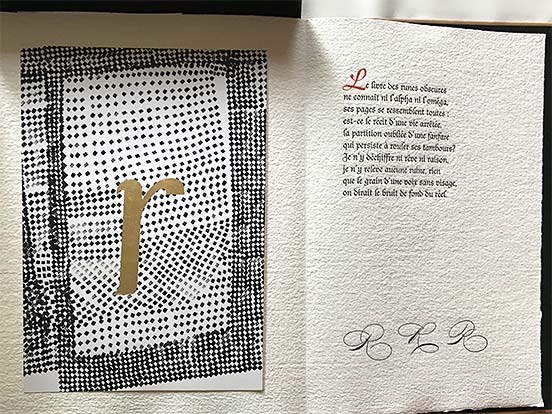 r
Le livre des runes obscures
ne connaît ni l'alpha ni l'oméga,
ses pages se ressemblent toutes :
est-ce le récit d'une vie arrêtée,
la partition oubliée d'une fanfare
qui persiste à rouler ses tambours?
Je n'y déchiffre ni rêve ni raison,
je n'y relève aucune ruine, rien
que le grain d'une voix sans visage,
on dirait le bruit de fond du réel.
R R R